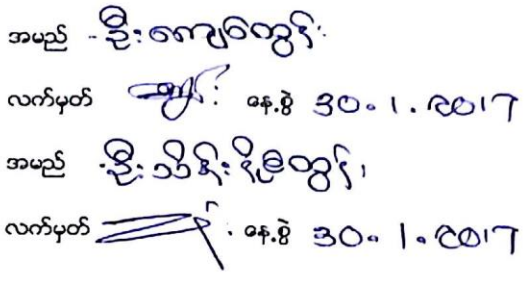 အမည် - ဦးကျော်ထွန်း
လက်မှတ် နေ့စွဲ 30.1.2017
အမည် - ဦးသိန်း
လက်မှတ် နေ့စွဲ 30.1.2017